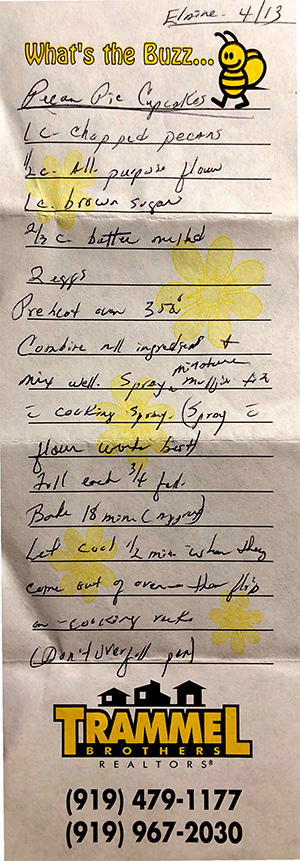 Elaine - 4/13
What's the Buzz...
Pecan Pie Cupcakes
1 c. chopped pecans
1/2 c. All purpose flour
1 c. brown sugar
2/3 c. butter melted
2 eggs
Preheat oven 350°
Combine all ingredients +
miniature
mix well. Spray muffin tin
c̄ cooking spray. (Spray c̄
flour works best)
Fill each 3/4 full.
Bake 18 min (approx)
Let cool 1/2 min when they
come out of oven - then flip
on - cooking rack
(Don't overfill pan)
TRAMMEL
BROTHERS
REALTORS®
(919) 479-1177
(919) 967-2030